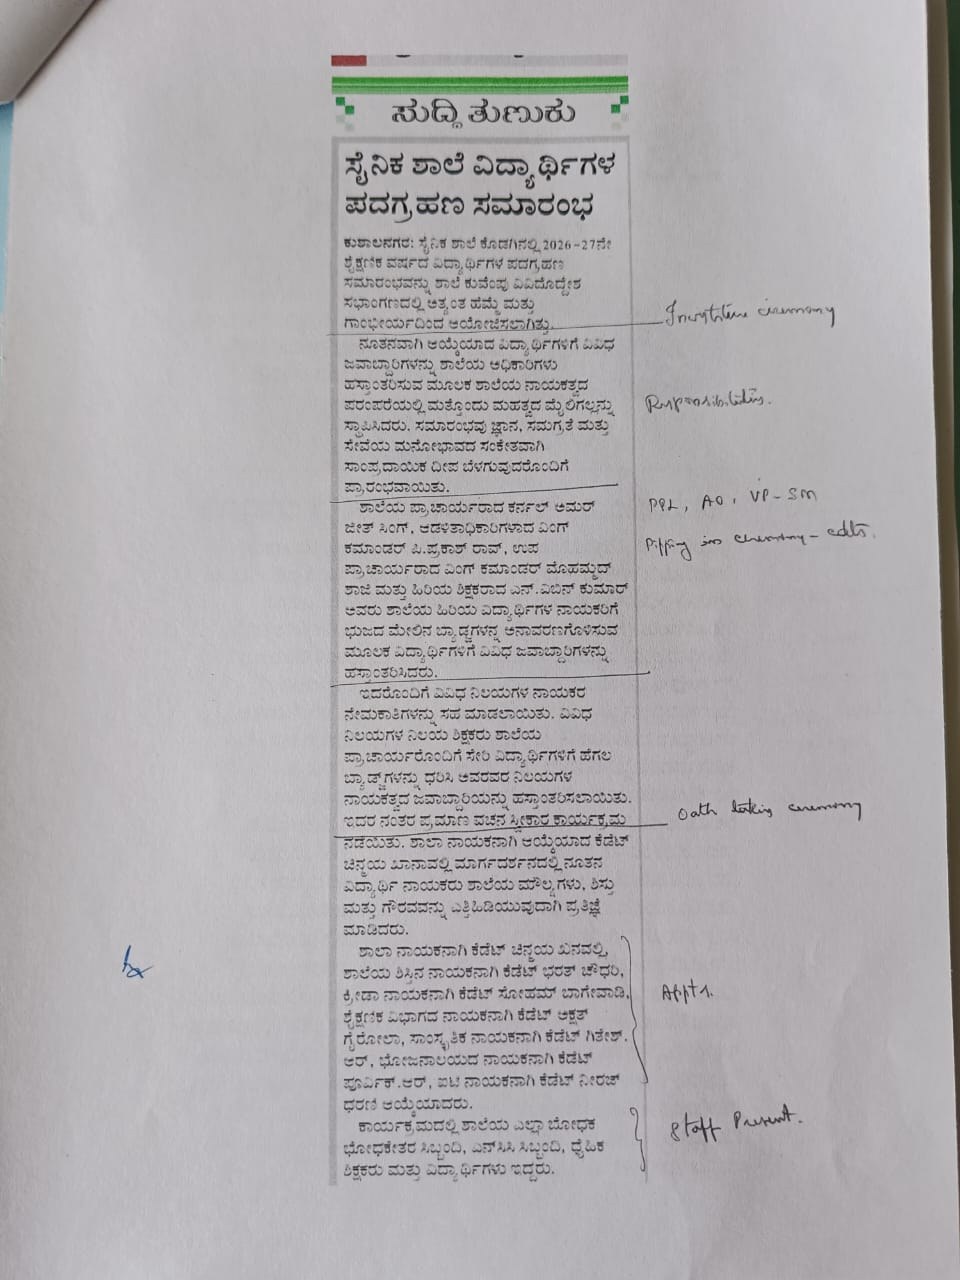 ಸುದ್ದಿ ತುಣುಕು
ಸೈನಿಕ ಶಾಲೆ ವಿದ್ಯಾರ್ಥಿಗಳ
ಪದಗ್ರಹಣ ಸಮಾರಂಭ
ಕುಶಾಲನಗರ: ಸೈನಿಕ ಶಾಲೆ ಕೊಡಗಿನಲ್ಲಿ 2026-27ನೇ
ಶೈಕ್ಷಣಿಕ ವರ್ಷದ ವಿದ್ಯಾರ್ಥಿಗಳ ಪದಗ್ರಹಣ
ಸಮಾರಂಭವನ್ನು ಶಾಲೆ ಕುವೆಂಪು ವಿವಿದೊದ್ದೇಶ
ಸಭಾಂಗಣದಲ್ಲಿ ಅತ್ಯಂತ ಹೆಮ್ಮೆ ಮತ್ತು
ಗಾಂಭೀರ್ಯದಿಂದ ಆಯೋಜಿಸಲಾಗಿತ್ತು.
ceremony
ನೂತನವಾಗಿ ಆಯ್ಕೆಯಾದ ವಿದ್ಯಾರ್ಥಿಗಳಿಗೆ ವಿವಿಧ
ಜವಾಬ್ದಾರಿಗಳನ್ನು ಶಾಲೆಯ ಅಧಿಕಾರಿಗಳು
ಹಸ್ತಾಂತರಿಸುವ ಮೂಲಕ ಶಾಲೆಯ ನಾಯಕತ್ವದ
ಪರಂಪರೆಯಲ್ಲಿ ಮತ್ತೊಂದು ಮಹತ್ವದ ಮೈಲಿಗಲ್ಲನ್ನು
Responsibilities.
ಸ್ಥಾಪಿಸಿದರು. ಸಮಾರಂಭವು ಜ್ಞಾನ, ಸಮಗ್ರತೆ ಮತ್ತು
ಸೇವೆಯ ಮನೋಭಾವದ ಸಂಕೇತವಾಗಿ
ಸಾಂಪ್ರದಾಯಿಕ ದೀಪ ಬೆಳಗುವುದರೊಂದಿಗೆ
ಪ್ರಾರಂಭವಾಯಿತು.
ಶಾಲೆಯ ಪ್ರಾಚಾರ್ಯರಾದ ಕರ್ನಲ್ ಅಮರ್
PPL, AO, VP - SM
ಜೀತ್ ಸಿಂಗ್, ಆಡಳಿತಾಧಿಕಾರಿಗಳಾದ ವಿಂಗ್
ಕಮಾಂಡರ್ ಪಿ.ಪ್ರಕಾಶ್ ರಾವ್, ಉಪ
ceremony -
ಪ್ರಾಚಾರ್ಯರಾದ ವಿಂಗ್ ಕಮಾಂಡರ್ ಮೊಹಮ್ಮದ್
ಶಾಜಿ ಮತ್ತು ಹಿರಿಯ ಶಿಕ್ಷಕರಾದ ಎನ್.ವಿಬಿನ್ ಕುಮಾರ್
ಅವರು ಶಾಲೆಯ ಹಿರಿಯ ವಿದ್ಯಾರ್ಥಿಗಳ ನಾಯಕರಿಗೆ
ಭುಜದ ಮೇಲಿನ ಬ್ಯಾಡ್ಜಗಳನ್ನ ಅನಾವರಣಗೊಳಿಸುವ
ಮೂಲಕ ವಿದ್ಯಾರ್ಥಿಗಳಿಗೆ ವಿವಿಧ ಜವಾಬ್ದಾರಿಗಳನ್ನು
ಹಸ್ತಾಂತರಿಸಿದರು.
ಇದರೊಂದಿಗೆ ವಿವಿಧ ನಿಲಯಗಳ ನಾಯಕರ
ನೇಮಕಾತಿಗಳನ್ನು ಸಹ ಮಾಡಲಾಯಿತು. ವಿವಿಧ
ನಿಲಯಗಳ ನಿಲಯ ಶಿಕ್ಷಕರು ಶಾಲೆಯ
ಪ್ರಾಚಾರ್ಯರೊಂದಿಗೆ ಸೇರಿ ವಿದ್ಯಾರ್ಥಿಗಳಿಗೆ ಹೆಗಲ
ಬ್ಯಾಡ್ಜ್‌ಗಳನ್ನು ಧರಿಸಿ ಅವರವರ ನಿಲಯಗಳ
ನಾಯಕತ್ವದ ಜವಾಬ್ದಾರಿಯನ್ನು ಹಸ್ತಾಂತರಿಸಲಾಯಿತು.
ಇದರ ನಂತರ ಪ್ರಮಾಣ ವಚನ ಸ್ವೀಕಾರ ಕಾರ್ಯಕ್ರಮ
Oath taking ceremony
ನಡೆಯಿತು. ಶಾಲಾ ನಾಯಕನಾಗಿ ಆಯ್ಕೆಯಾದ ಕೆಡೆಟ್
ಚಿನ್ಮಯ ಖಾನಾವಲ್ಲಿ ಮಾರ್ಗದರ್ಶನದಲ್ಲಿ ನೂತನ
ವಿದ್ಯಾರ್ಥಿ ನಾಯಕರು ಶಾಲೆಯ ಮೌಲ್ಯಗಳು, ಶಿಸ್ತು
ಮತ್ತು ಗೌರವವನ್ನು ಎತ್ತಿಹಿಡಿಯುವುದಾಗಿ ಪ್ರತಿಜ್ಞೆ
ಮಾಡಿದರು.
ಶಾಲಾ ನಾಯಕನಾಗಿ ಕೆಡೆಟ್ ಚಿನ್ಮಯ ಖನವಲ್ಲಿ,
ಶಾಲೆಯ ಶಿಸ್ತಿನ ನಾಯಕನಾಗಿ ಕೆಡೆಟ್ ಭರತ್ ಚೌಧರಿ,
ಕ್ರೀಡಾ ನಾಯಕನಾಗಿ ಕೆಡೆಟ್ ಸೋಹಮ್ ಬಾಗೇವಾಡಿ,
Appts.
ಶೈಕ್ಷಣಿಕ ವಿಭಾಗದ ನಾಯಕನಾಗಿ ಕೆಡೆಟ್ ಅಕ್ಷತ್
ಗೈರೋಲಾ, ಸಾಂಸ್ಕೃತಿಕ ನಾಯಕನಾಗಿ ಕೆಡೆಟ್ ಗಿತೇಶ್.
ಆರ್, ಭೋಜನಾಲಯದ ನಾಯಕನಾಗಿ ಕೆಡೆಟ್
ಪೂರ್ವಿಕ್.ಆರ್, ಐಟಿ ನಾಯಕನಾಗಿ ಕೆಡೆಟ್ ನೀರಜ್
ಧರಣಿ ಆಯ್ಕೆಯಾದರು.
ಕಾರ್ಯಕ್ರಮದಲ್ಲಿ ಶಾಲೆಯ ಎಲ್ಲಾ ಬೋಧಕ
Staff Present.
ಭೋಧಕೇತರ ಸಿಬ್ಬಂದಿ, ಎನ್‌ಸಿಸಿ ಸಿಬ್ಬಂದಿ, ಧೈಹಿಕ
ಶಿಕ್ಷಕರು ಮತ್ತು ವಿದ್ಯಾರ್ಥಿಗಳು ಇದ್ದರು.